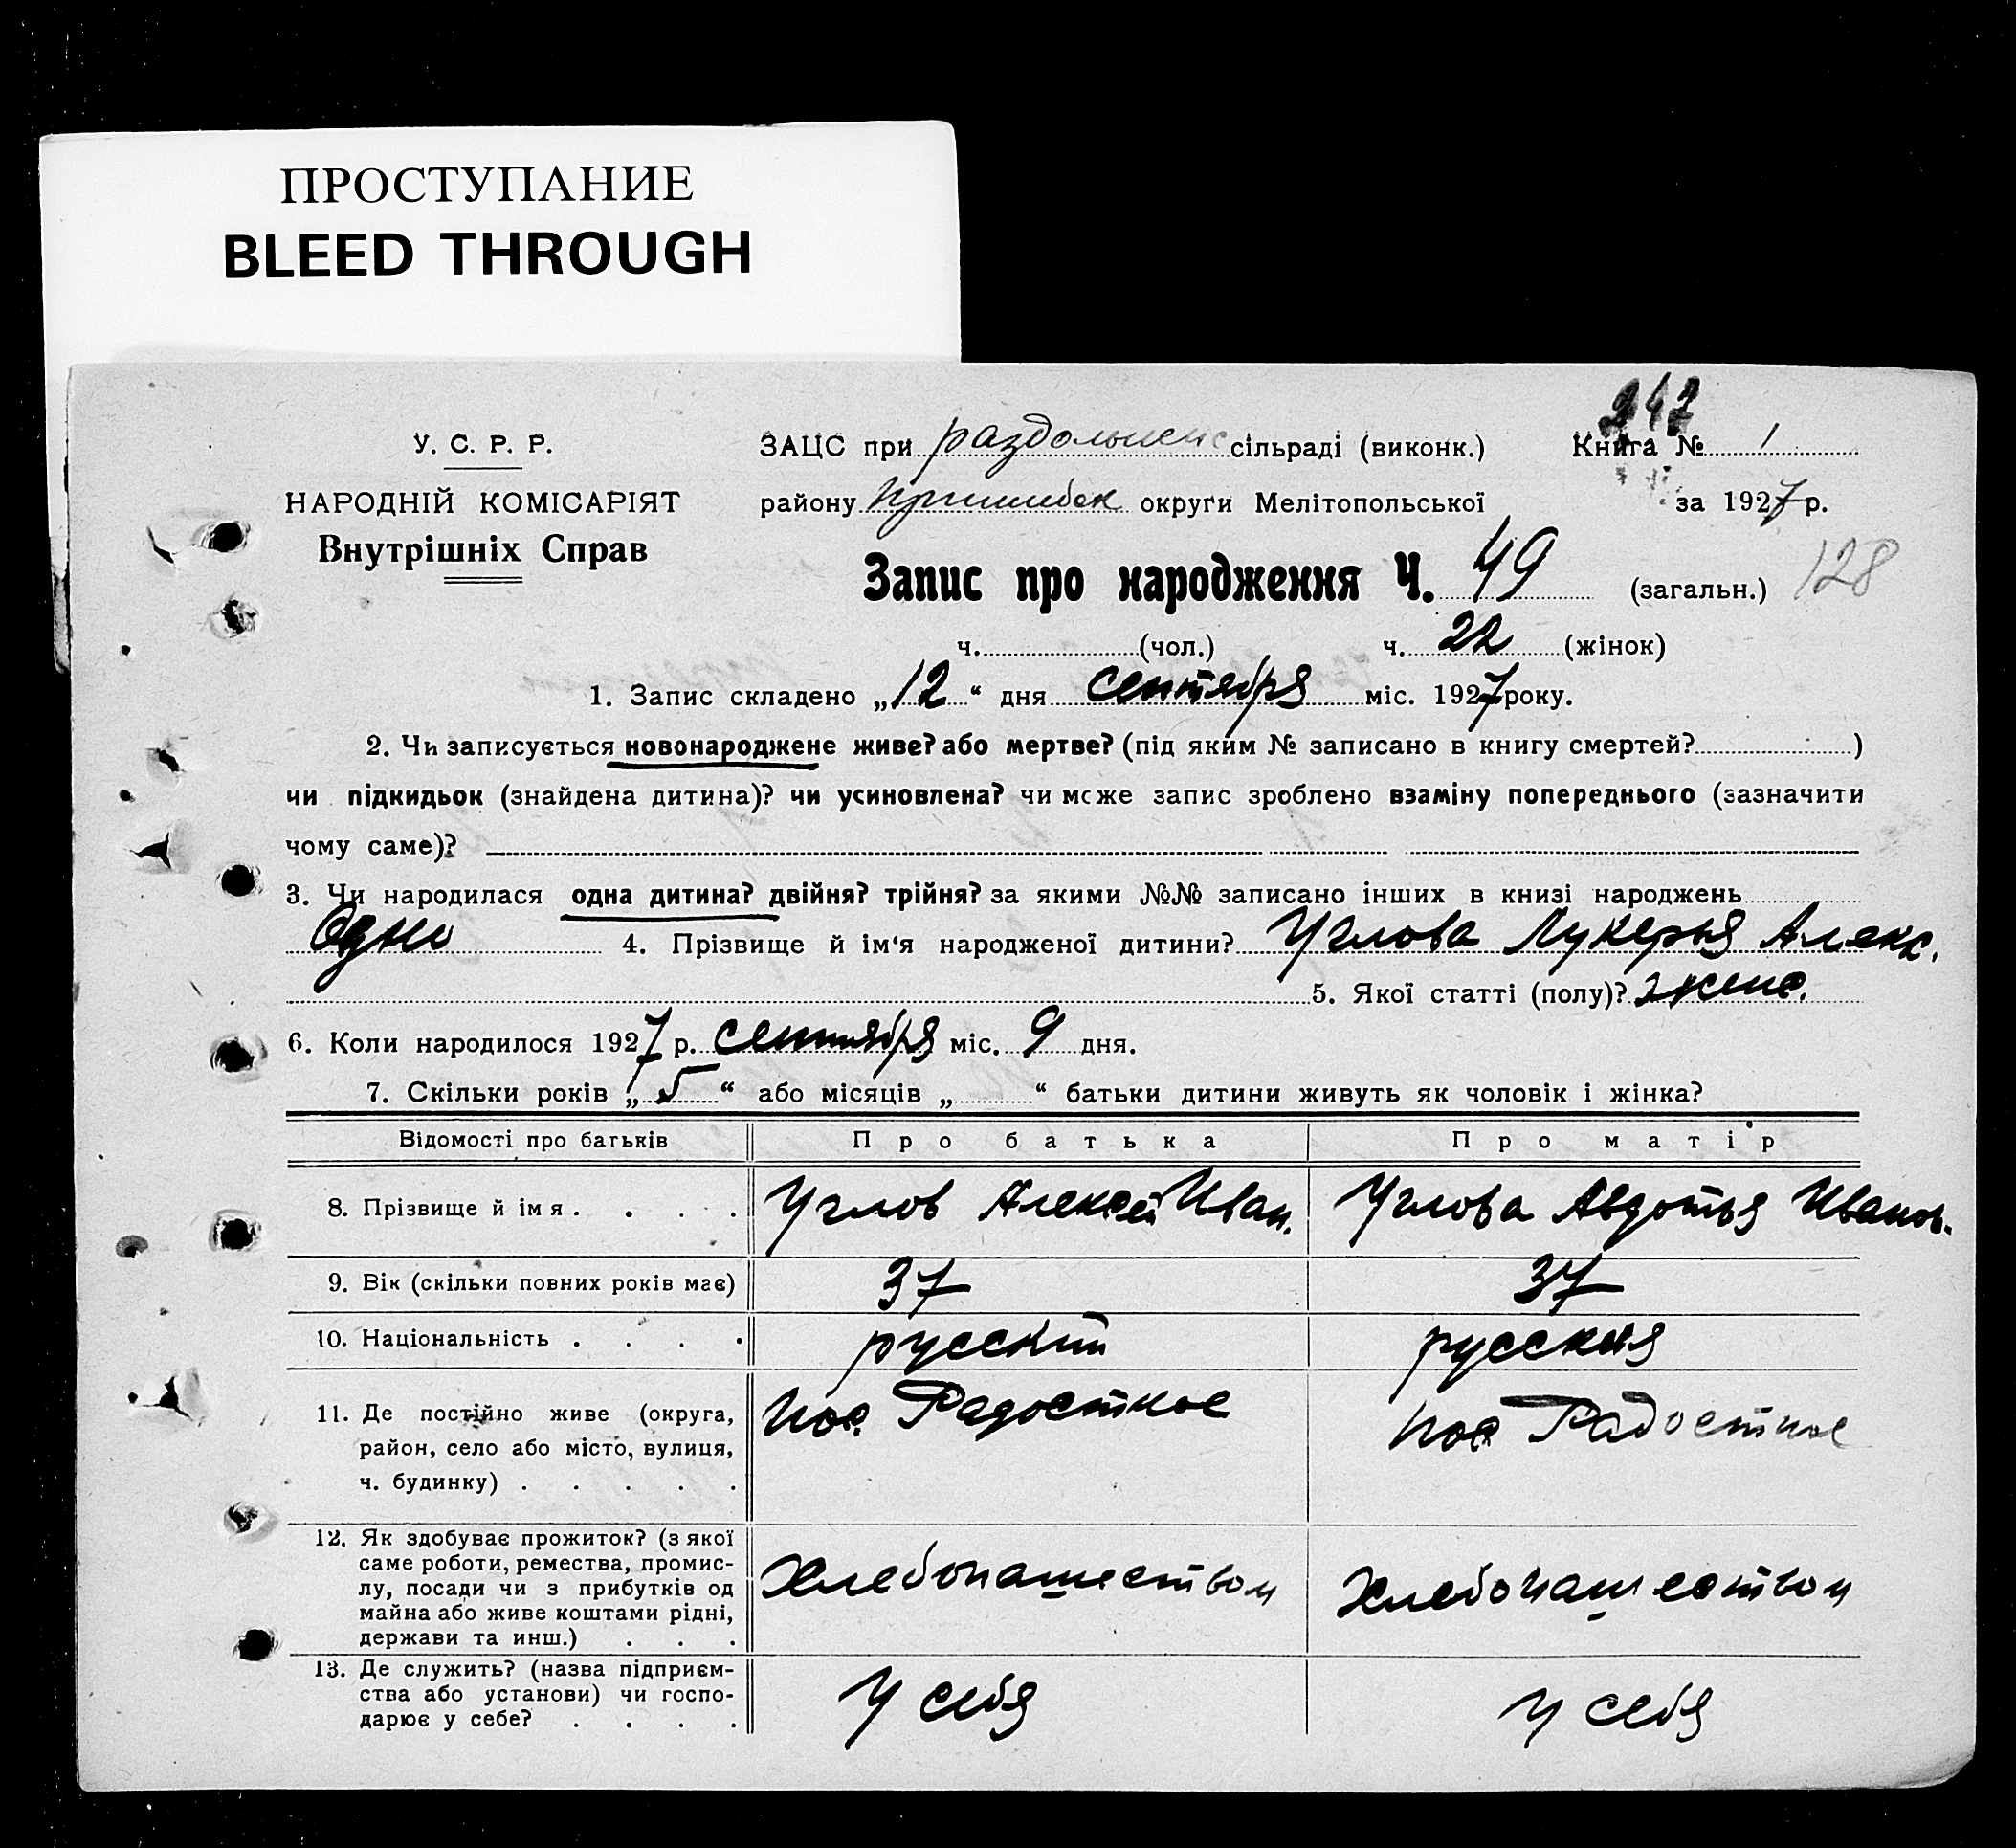 ПРОСТУПАНИЕ
BLEED THROUGH
247
У. С. Р. Р.
НАРОДНІЙ КОМІСАРІЯТ
Внутрішніх Справ
ЗАЦС при раздольненс сільраді (виконк.) Книга № 1
району Пришибск округи Мелітопольської за 1927 р.
Запис про народження Ч. 49 (загальн.) 128
ч. (чол.) ч. 22 (жінок)
1. Запис складено „12“ дня сентября міс. 1927 року.
2. Чи записується новонароджене живе? або мертве? (під яким № записано в книгу смертей? )
чи підкидьок (знайдена дитина)? чи усиновлена? чи може запис зроблено взаміну попереднього (зазначити
чому саме)?
3. Чи народилася одна дитина? двійня? трійня? за якими №№ записано інших в книзі народжень
Одно 4. Прізвище й ім'я народженої дитини? Углова Лукерья Алекс.
5. Якої статті (полу)? женс.
6. Коли народилося 1927 р. сентября міс. 9 дня.
7. Скільки років „5“ або місяців „ “ батьки дитини живуть як чоловік і жінка?
Відомості про батьків Про батька Про матір
8. Прізвище й імя . . . . Углов Алексей Иван. Углова Авдотья Иванов.
9. Вік (скільки повних років має) 37 37
10. Національність . . . . русский русская
11. Де постійно живе (округа,
район, село або місто, вулиця,
ч. будинку) . . . . .
пос. Радостное пос Радостное
12. Як здобуває прожиток? (з якої
саме роботи, ремества, промис-
лу, посади чи з прибутків од
майна або живе коштами рідні,
держави та инш.) . . .
Хлебопашеством Хлебопашеством
13. Де служить? (назва підприєм-
ства або установи) чи госпо-
дарює у себе? . . . .
У себя у себя